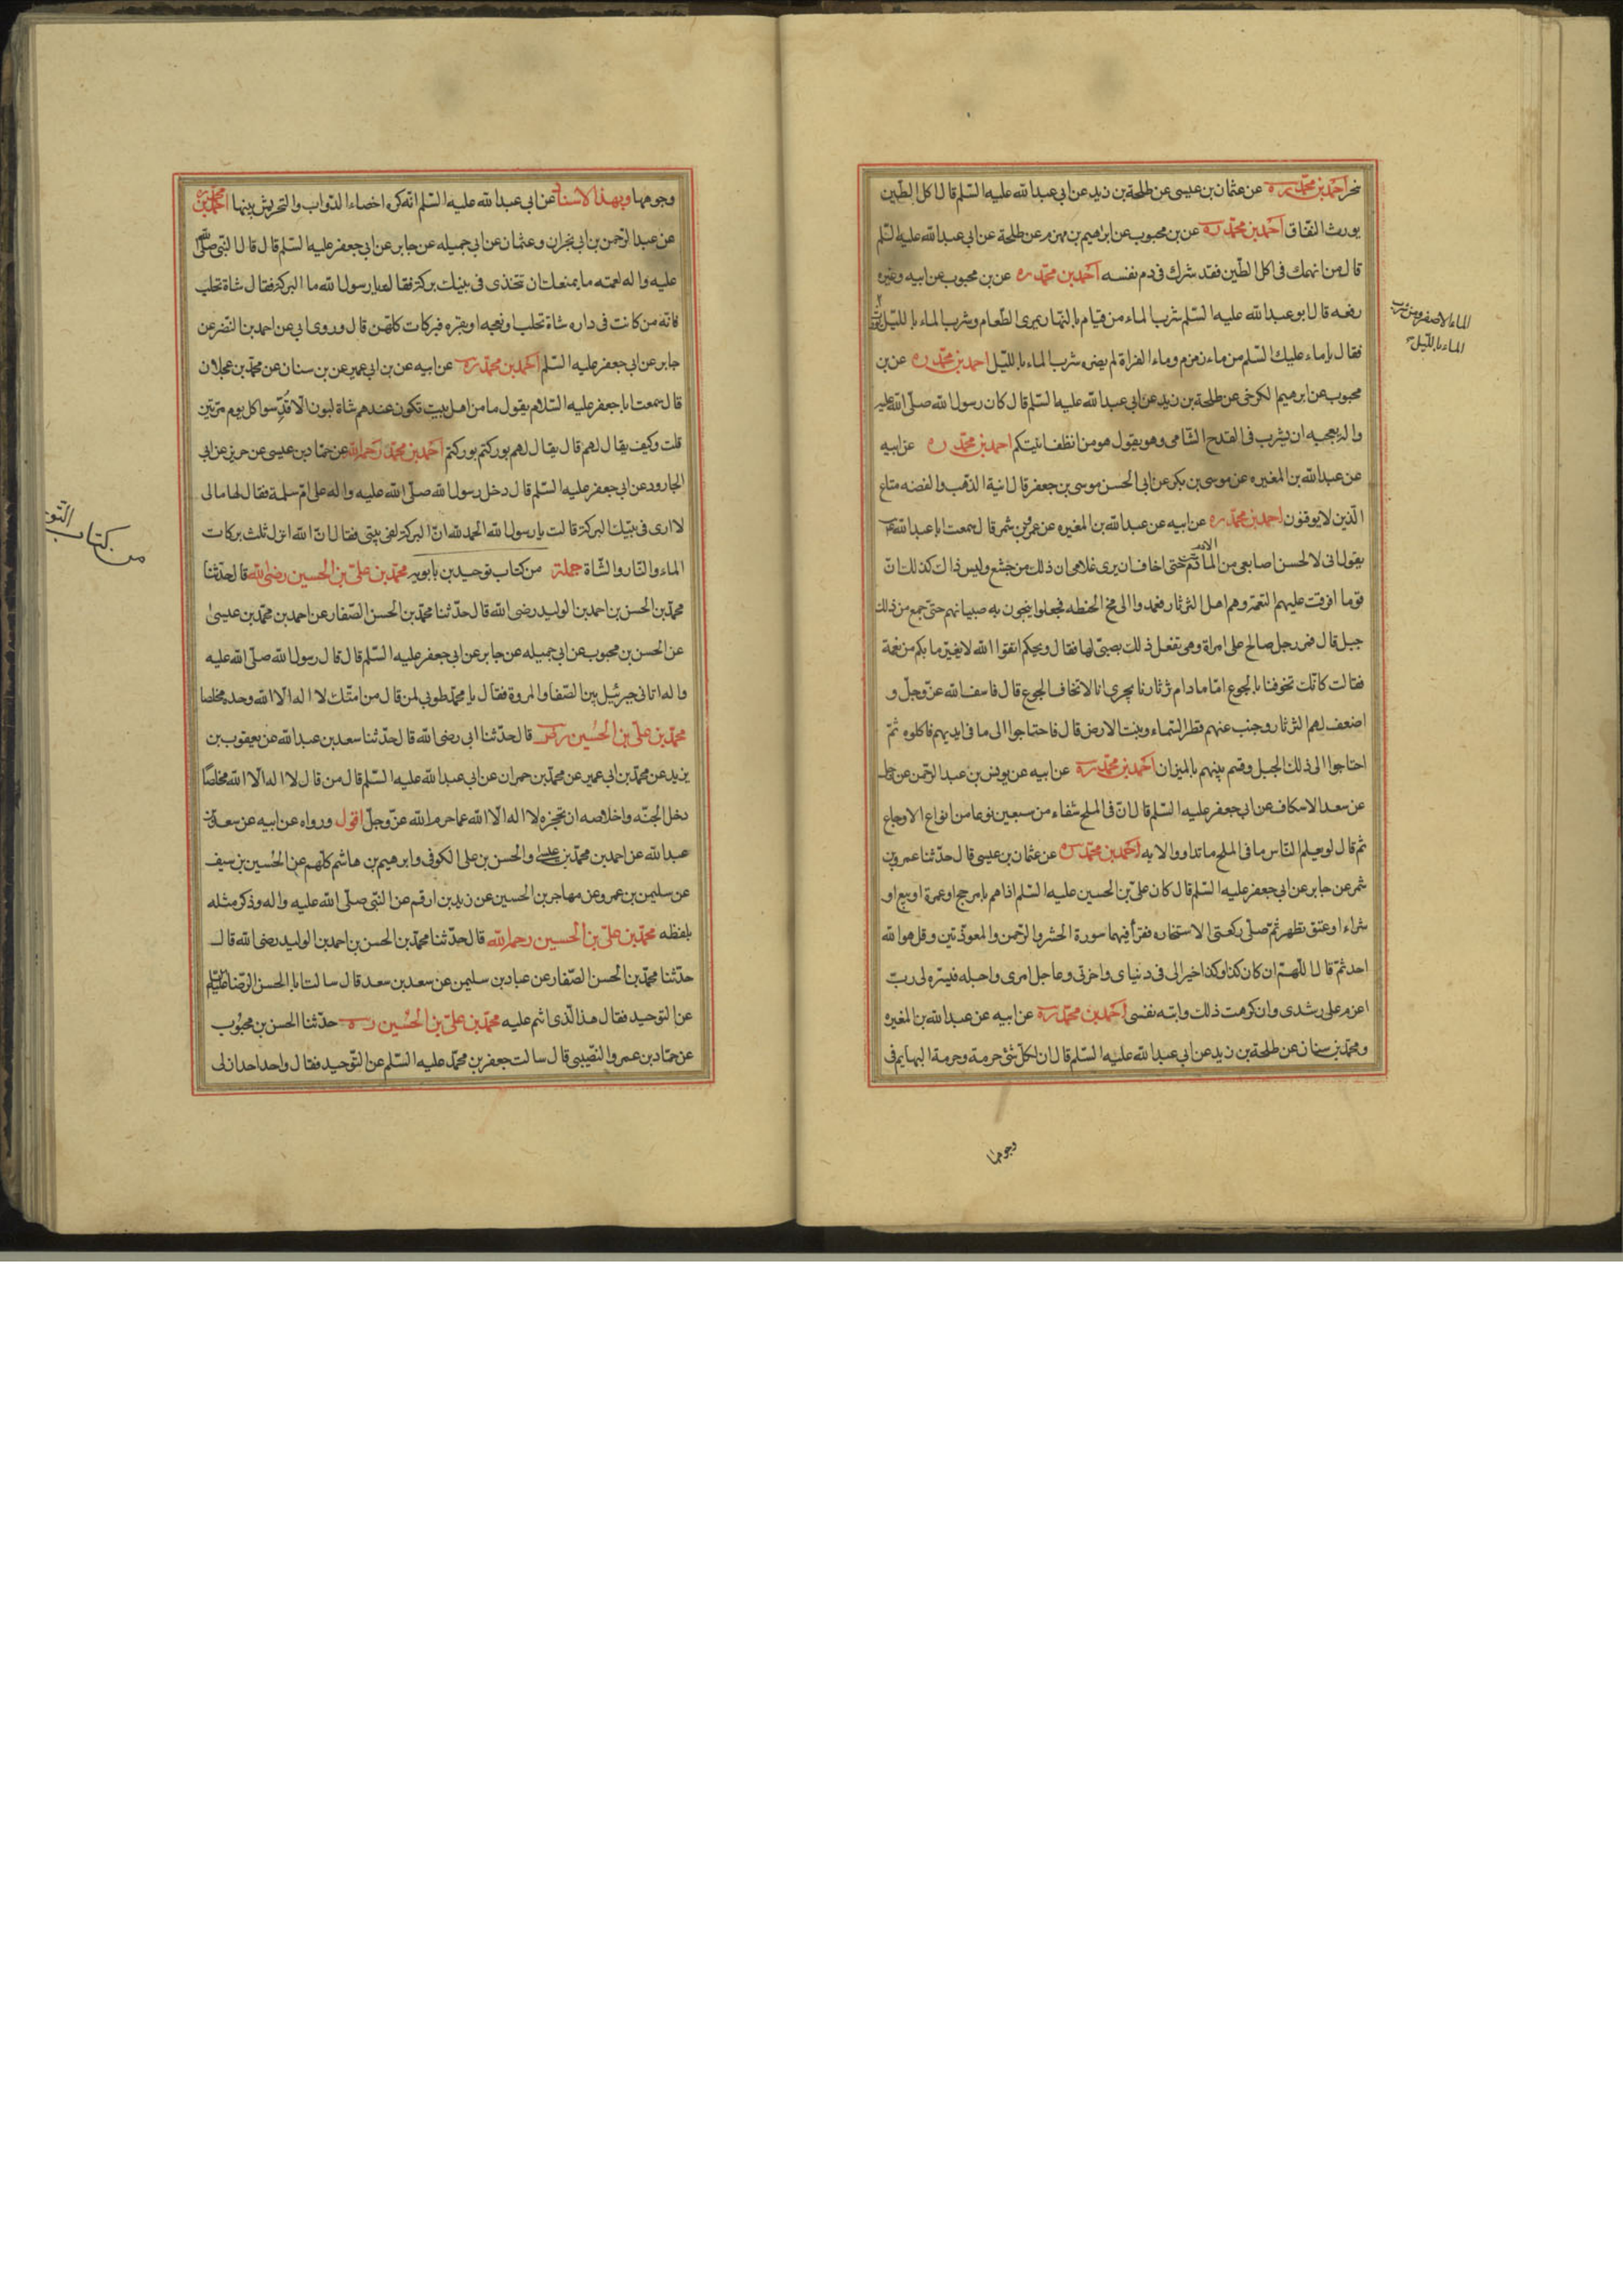 نحر احمد بن محمد ره عن عثمان بن عيسى عن طلحة بن زيد عن ابي عبد الله عليه السلم قال اكل الطين
يورث النفاق احمد بن محمد ره عن بن محبوب عن ابراهيم بن مهزم عن طلحة عن ابي عبد الله عليه السلم
قال من انهمك في اكل الطين فقد شرك في دم نفسه احمد بن محمد ره عن بن محبوب عن ابيه وغيره
رفعه قال ابو عبد الله عليه السلم شرب الماء من قيام بالنهار يمرى الطعام وشرب الماء بالليل
الماء الاصفر ومن شرب
الماء بالليل
فقال يا ماء عليك السلم من ماء زمزم وماء الفراة لم يضره شرب الماء بالليل احمد بن محمد ره عن بن
محبوب عن ابرهيم الكرخى عن طلحة بن زيد عن ابي عبد الله عليه السلم قال كان رسول الله صلى الله عليه
واله يعجبه ان يشرب في القدح الشامى وهو يقول هو من انظف انيتكم احمد بن محمد ره عن ابيه
عن عبد الله بن المغيره عن موسى بن بكر عن ابي الحسن موسى بن جعفر قال انية الذهب والفضه متاع
الذين لا يوقنون احمد بن محمد ره عن ابيه عن عبد الله بن المغيره عن عمرو بن شمر قال سمعت ابا عبد الله
يقول انى لالحسن اصابعى من المادم حتى اخاف ان يرى غلامى ان ذلك من جشع وليس ذاك كذلك ان
قوما افرغت عليهم النعمة وهم اهل الثرثار فعمدوا الى مخ الحنطه فجعلوا ينجون به صبيانهم حتى جمع من ذلك
جبل قال فمر رجل صالح على امراة وهى تفعل ذلك بصبى لها فقال ويحكم اتقوا الله لا يغير ما بكم من نعمة
فقالت كانك تخوفنا بالجوع اما مادام ثرثارنا يجرى انا لا نخاف الجوع قال فاسف الله عز وجل و
اضعف لهم الثرثار وجنب عنهم قطر السماء ونبت الارض قال فاحتاجوا الى ما في ايديهم فاكلوه ثم
احتاجوا الى ذلك الجبل وقسم بينهم بالميزان احمد بن محمد ره عن ابيه عن يونس بن عبد الرحمن عن رجل
عن سعد الاسكاف عن ابي جعفر عليه السلم قال ان في الملح شفاء من سبعين نوعا من انواع الاوجاع
ثم قال لو يعلم الناس ما في الملح ما تداووا الا به احمد بن محمد ره عن عثمان بن عيسى قال حدثنا عمرو بن
شمر عن جابر عن ابي جعفر عليه السلم قال كان على بن الحسين عليه السلم اذا هم بامر حج او عمرة او بيع او
شراء او عتق تطهر ثم صلى ركعتى الاستخاره فقرأ فيهما سورة الحشر والرحمن والمعوذتين وقل هو الله
احد ثم قال اللهم ان كان كذا وكذا خيرا لى في دنياى واخرتى وعاجل امرى واجله فيسره لى رب
اعزم على رشدى وان كرهت ذلك وابته نفسى احمد بن محمد ره عن ابيه عن عبد الله بن المغيره
ومحمد بن سنان عن طلحة بن زيد عن ابي عبد الله عليه السلم قال ان لكل شئ حرمة وحرمة البهايم في
وجوهها
وجوهها وبهذا الاسناد عن ابي عبد الله عليه السلم انه كره اخصاء الدواب والتحريش بينها احمد بن محمد ره
عن عبد الرحمن بن ابي نجران وعثمان عن ابي جميله عن جابر عن ابي جعفر عليه السلم قال قال النبى صلى الله
عليه واله لعمته ما يمنعك ان تتخذى في بيتك بركة فقالت يا رسول الله ما البركة فقال شاة تحلب
فانه من كانت في داره شاة تحلب او نعجه او بقره فبركات كلهن قال وروى ابي عن احمد بن النضر عن
جابر عن ابي جعفر عليه السلم احمد بن محمد ره عن ابيه عن بن ابي عمير عن بن سنان عن محمد بن عجلان
قال سمعت ابا جعفر عليه السلام يقول ما من اهل بيت تكون عندهم شاة لبون الا قدسوا كل يوم مرتين
قلت وكيف يقال لهم قال يقال لهم بوركتم بوركتم احمد بن محمد رحمه الله عن حماد بن عيسى عن حريز عن ابي
الجارود عن ابي جعفر عليه السلم قال دخل رسول الله صلى الله عليه واله على ام سلمة فقال لها مالى
لا ارى في بيتك البركة قالت يا رسول الله الحمد لله ان البركة لفى بيتى فقال ان الله انزل ثلث بركات
من كتاب التو
الماء والنار والشاة جملة من كتاب توحيد بن بابويه محمد بن على بن الحسين رضى الله قال حدثنا
محمد بن الحسن بن احمد بن الوليد رضى الله قال حدثنا محمد بن الحسن الصفار عن احمد بن محمد بن عيسى
عن الحسن بن محبوب عن ابي جميله عن جابر عن ابي جعفر عليه السلم قال قال رسول الله صلى الله عليه
واله اتانى جبرئيل بين الصفا والمروة فقال يا محمد طوبى لمن قال من امتك لا اله الا الله وحده مخلصا
محمد بن على بن الحسين ره قال حدثنا ابي رضى الله قال حدثنا سعد بن عبد الله عن يعقوب بن
يزيد عن محمد بن ابي عمير عن محمد بن حمران عن ابي عبد الله عليه السلم قال من قال لا اله الا الله مخلصا
دخل الجنة واخلاصه ان تحجزه لا اله الا الله عما حرم الله عز وجل اقول ورواه عن ابيه عن سعد بن
عبد الله عن احمد بن محمد بن عيسى والحسن بن على الكوفى وابرهيم بن هاشم كلهم عن الحسين بن سيف
عن سليمن بن عمرو عن مهاجر بن الحسين عن زيد بن ارقم عن النبى صلى الله عليه واله وذكر مثله
بلفظه محمد بن على بن الحسين رحمه الله قال حدثنا محمد بن الحسن بن احمد بن الوليد رضى الله قال
حدثنا محمد بن الحسن الصفار عن عباد بن سليمن عن سعد بن سعد قال سالت ابا الحسن الرضا عليه السلم
عن التوحيد فقال هذا الذى انتم عليه محمد بن على بن الحسين ره حدثنا الحسن بن محبوب
عن حماد بن عمرو النصيبى قال سالت جعفر بن محمد عليه السلم عن التوحيد فقال واحد احد ازلى